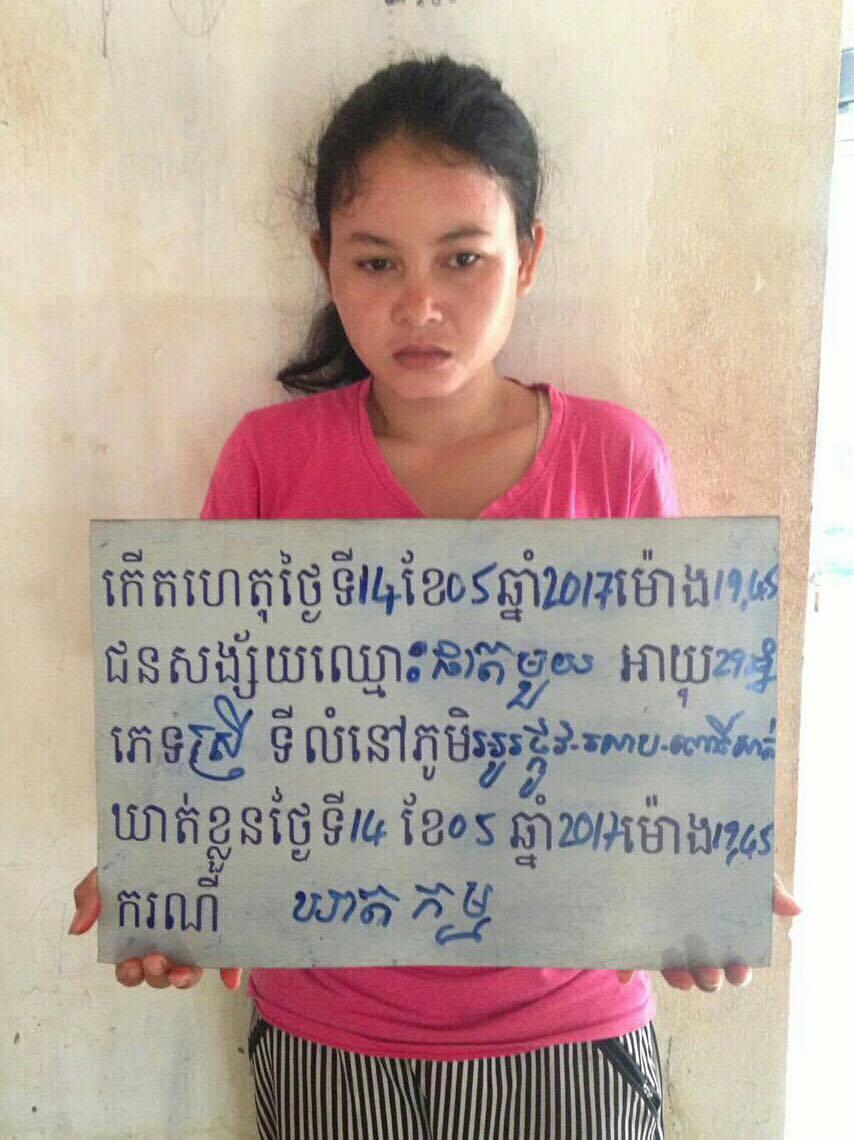 កើតហេតុថ្ងៃទី14ខែ05ឆ្នាំ2017ម៉ោង19,45
ជនសង្ស័យឈ្មោះ ផាត មួយ អាយុ29ឆ្នាំ
ភេទស្រី ទីលំនៅភូមិ
ឃាត់ខ្លួនថ្ងៃទី14 ខែ05 ឆ្នាំ2017ម៉ោង19,45
ករណី ឃាតកម្ម